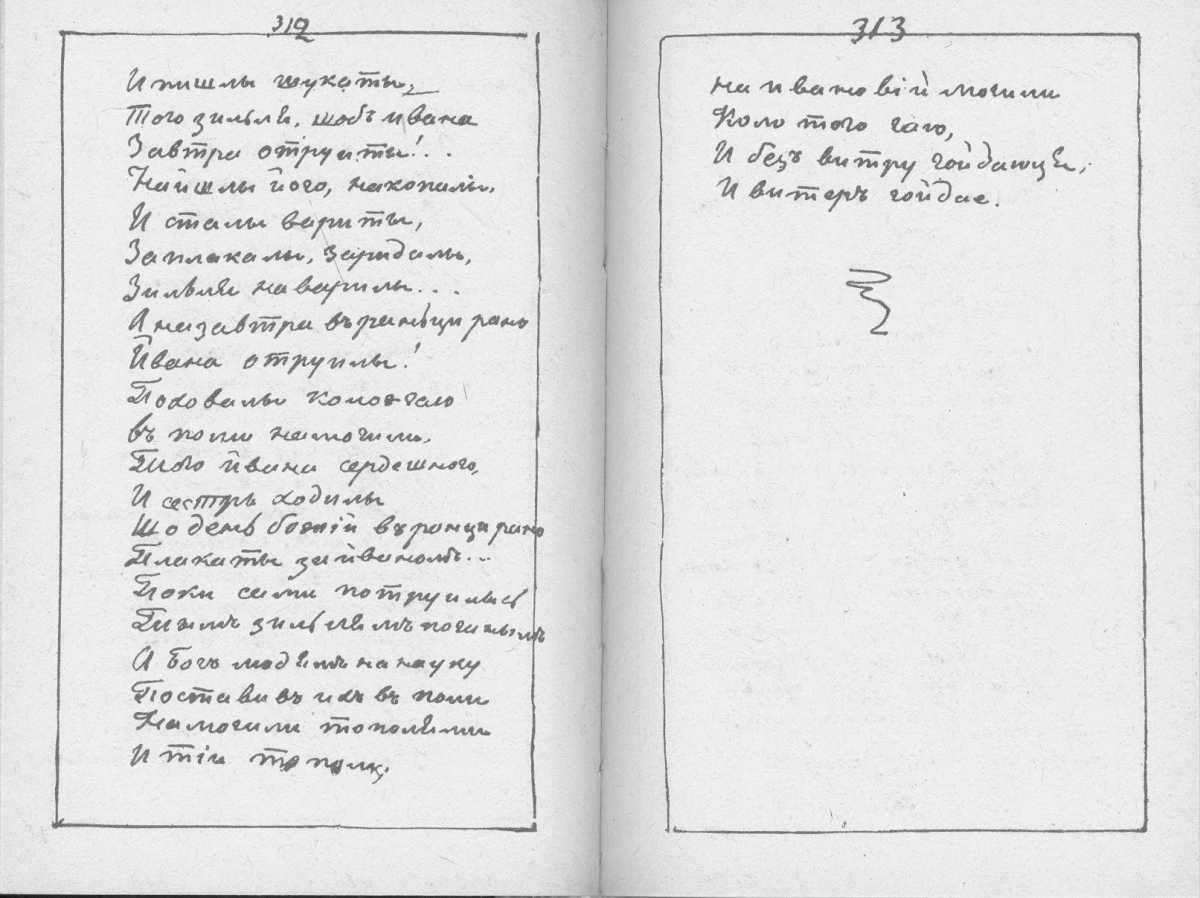 312
И пишлы шукаты,
Того зильля, щобъ ивана
Завтра отруиты!..
Найшлы його, накопалы,
И сталы вариты,
Заплакалы, заридалы,
Зильля наварилы...
А назавтра въраньци рано
Йвана отруилы!
Поховалы коло гаю
въ поли намогили.
Того йвана сердешного,
И сестры ходилы
Що день божій въранци рано
Плакаты за йваномъ...
Поки сами потруилысь
Тимъ зильлямъ поганымъ
А Богъ людямъ на науку
Поставивъ ихъ въ поли
На могили тополями
И тіи тополи,
313
на ивановій могили
Коло того гаю,
И безъ витру гойдаюця,
И витеръ гойдае.